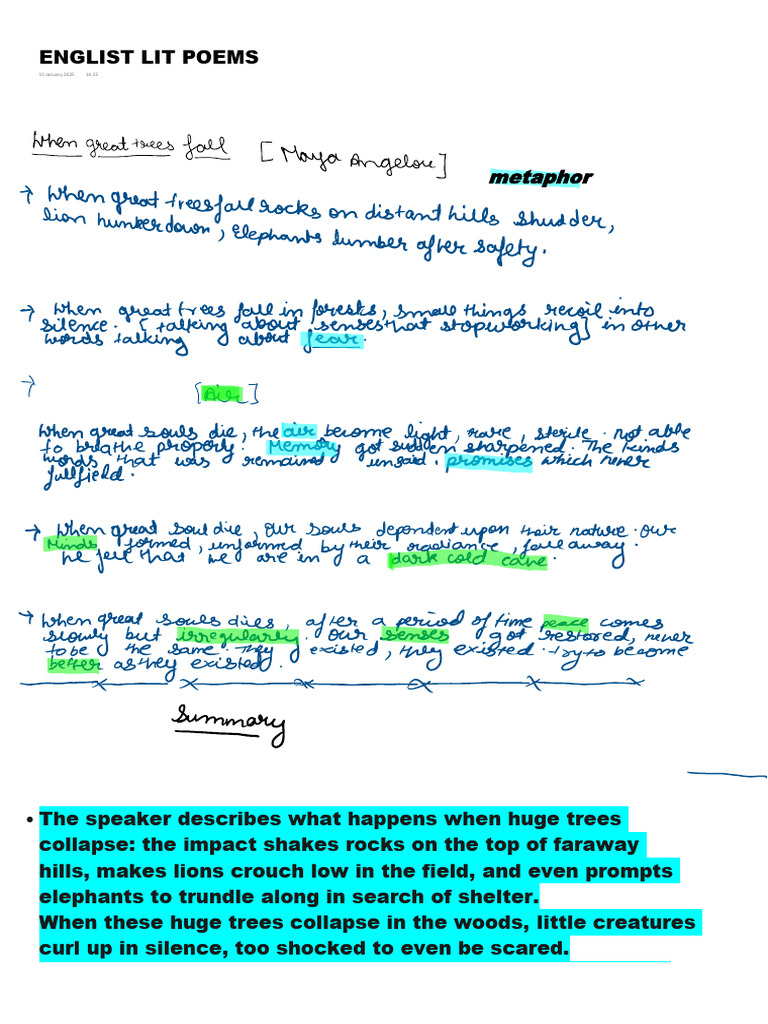 ENGLIST LIT POEMS
15 January 2025 14:22
When great trees fall [Maya Angelou]
metaphor
→ When great trees fall rocks on distant hills shudder,
lion hunker down, Elephants lumber after safety.
→ When great trees fall in forests, small things recoil into
silence. [talking about senses that stop working] in other
words talking about fear.
→
[Air]
When great souls die, the air become light, rare, sterile. not able
to breathe properly. Memory got sudden sharpened. The kinds
words that was remained unsaid. promises which never
fullfield.
→ When great soul die, our souls dependent upon their nature. Our
Minds formed, informed by their radiance, fall away.
We fell that we are in a dark cold cave.
→ When great souls dies, after a period of time peace comes
slowly but irregularly. Our senses got restored, never
to be the same. They existed, they existed. try to become
better as they existed.
Summary
• The speaker describes what happens when huge trees
collapse: the impact shakes rocks on the top of faraway
hills, makes lions crouch low in the field, and even prompts
elephants to trundle along in search of shelter.
When these huge trees collapse in the woods, little creatures
curl up in silence, too shocked to even be scared.